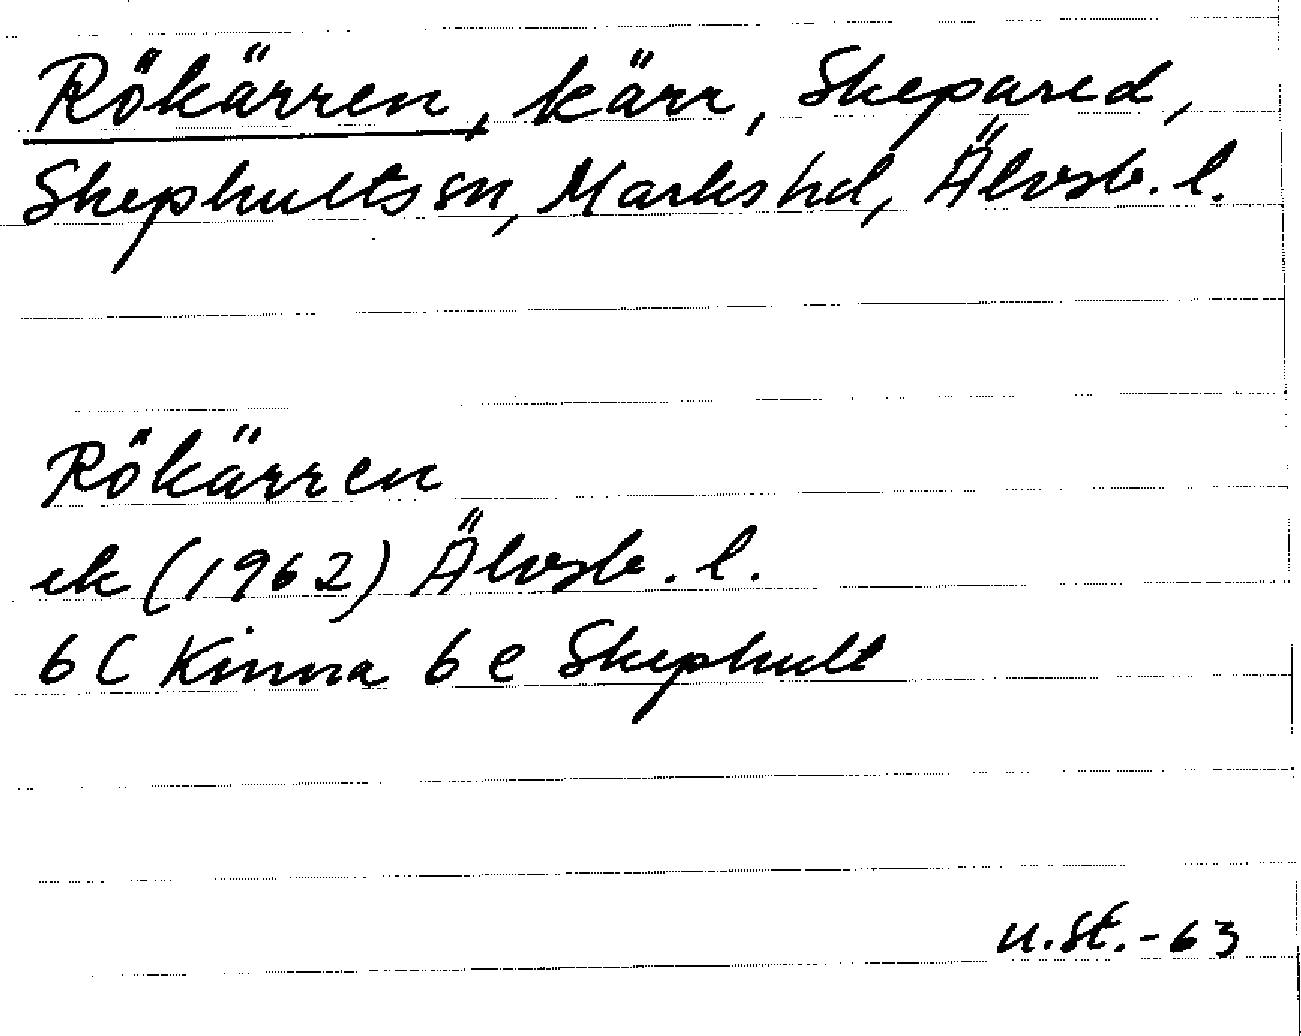 Rökärren, kärr, Skepared,
Skephults sn, Marks hd, Älvsb. l.
Rökärren
ek (1962) Älvsb. l.
6 C Kinna 6 e Skephult
u.st.-63